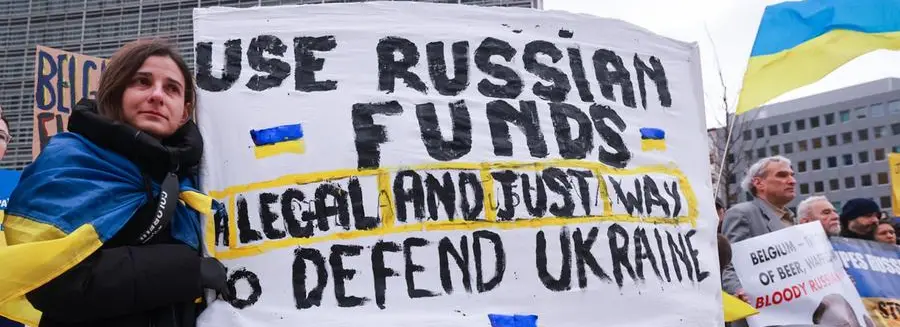 USE RUSSIAN
FUNDS
A LEGAL AND JUST WAY
TO DEFEND UKRAINE
BELG
COLORADO
BELGIUM –
OF BEER,
BLOODY RUSSIAN